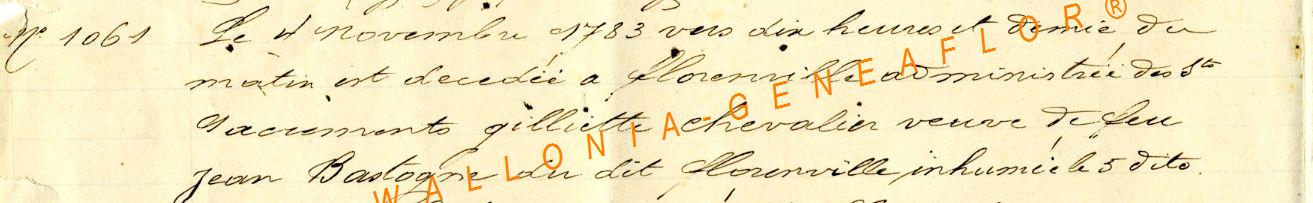 No 1061 Le 4 Novembre 1783 vers dix heures et demie du
matin est decedée a florenville administrée des Sts
Sacrements gilliette chevalier veuve de feu
jean Bastogne du dit florenville inhumée le 5 dito.
WALLONIA-GENEAFLOR®